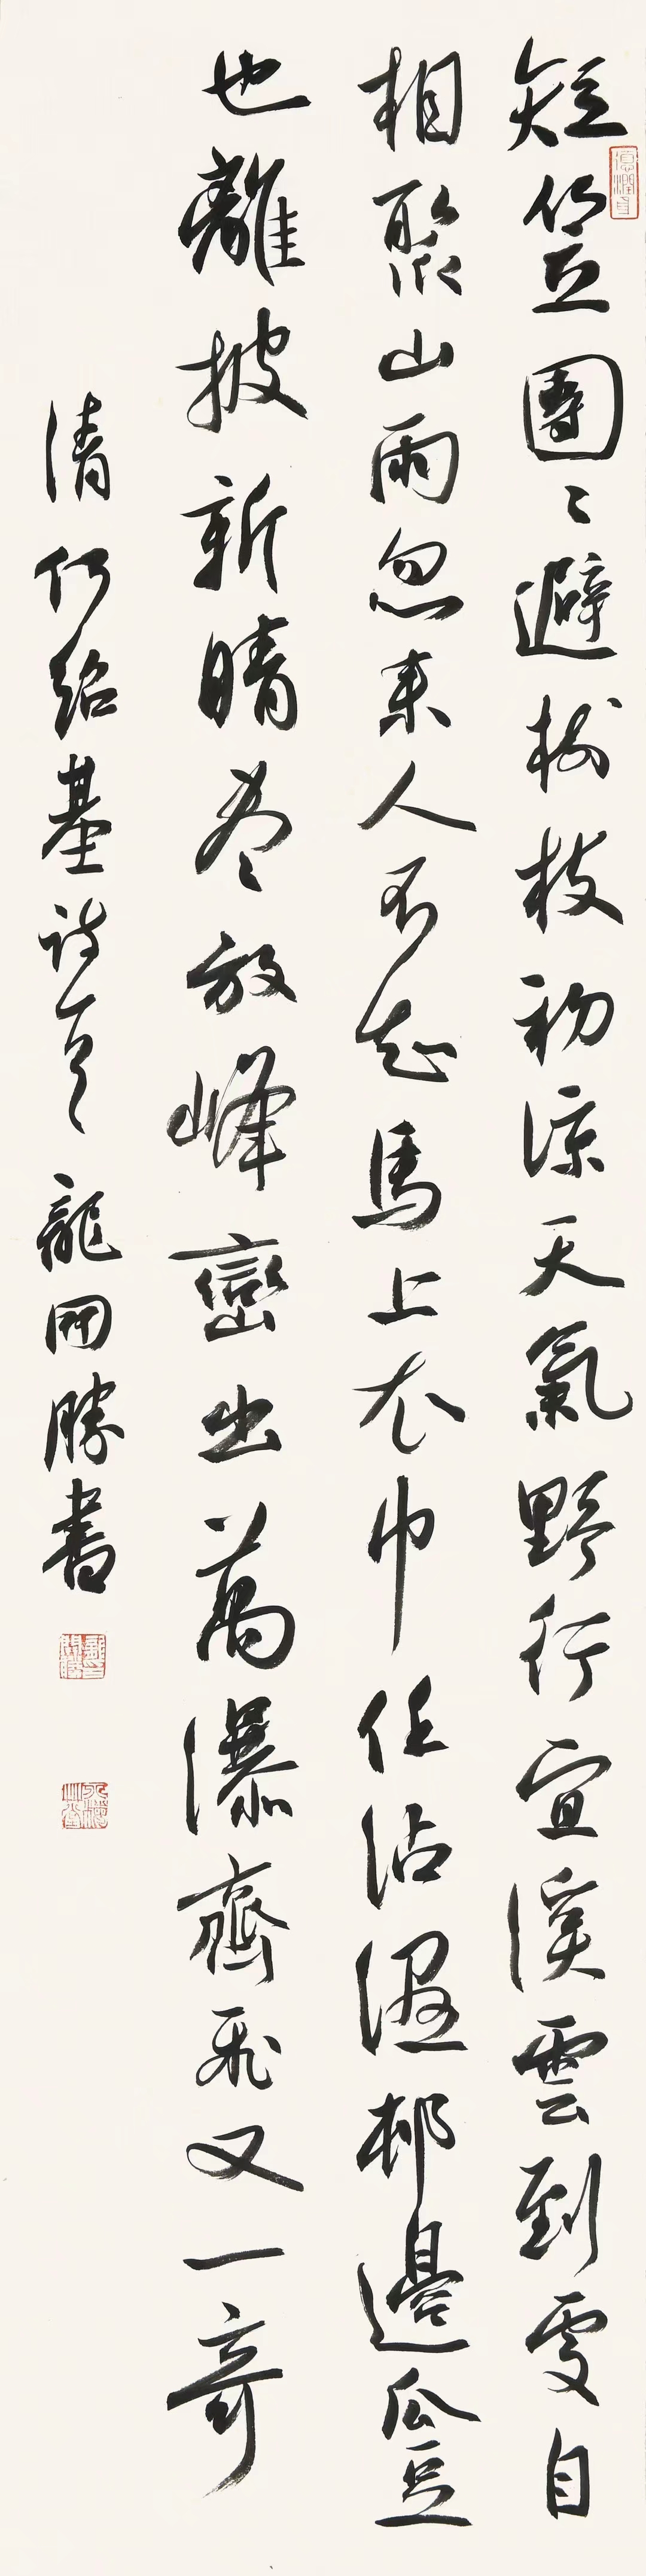 短笠團〻避樹枝初涼天氣野行宜溪雲到處自
相聚山雨忽來人不知馬上衣巾任沾濕村邊瓜豆
也離披新晴盡放峰巒出萬瀑齊飛又一奇
清何紹基詩一首龍開勝書